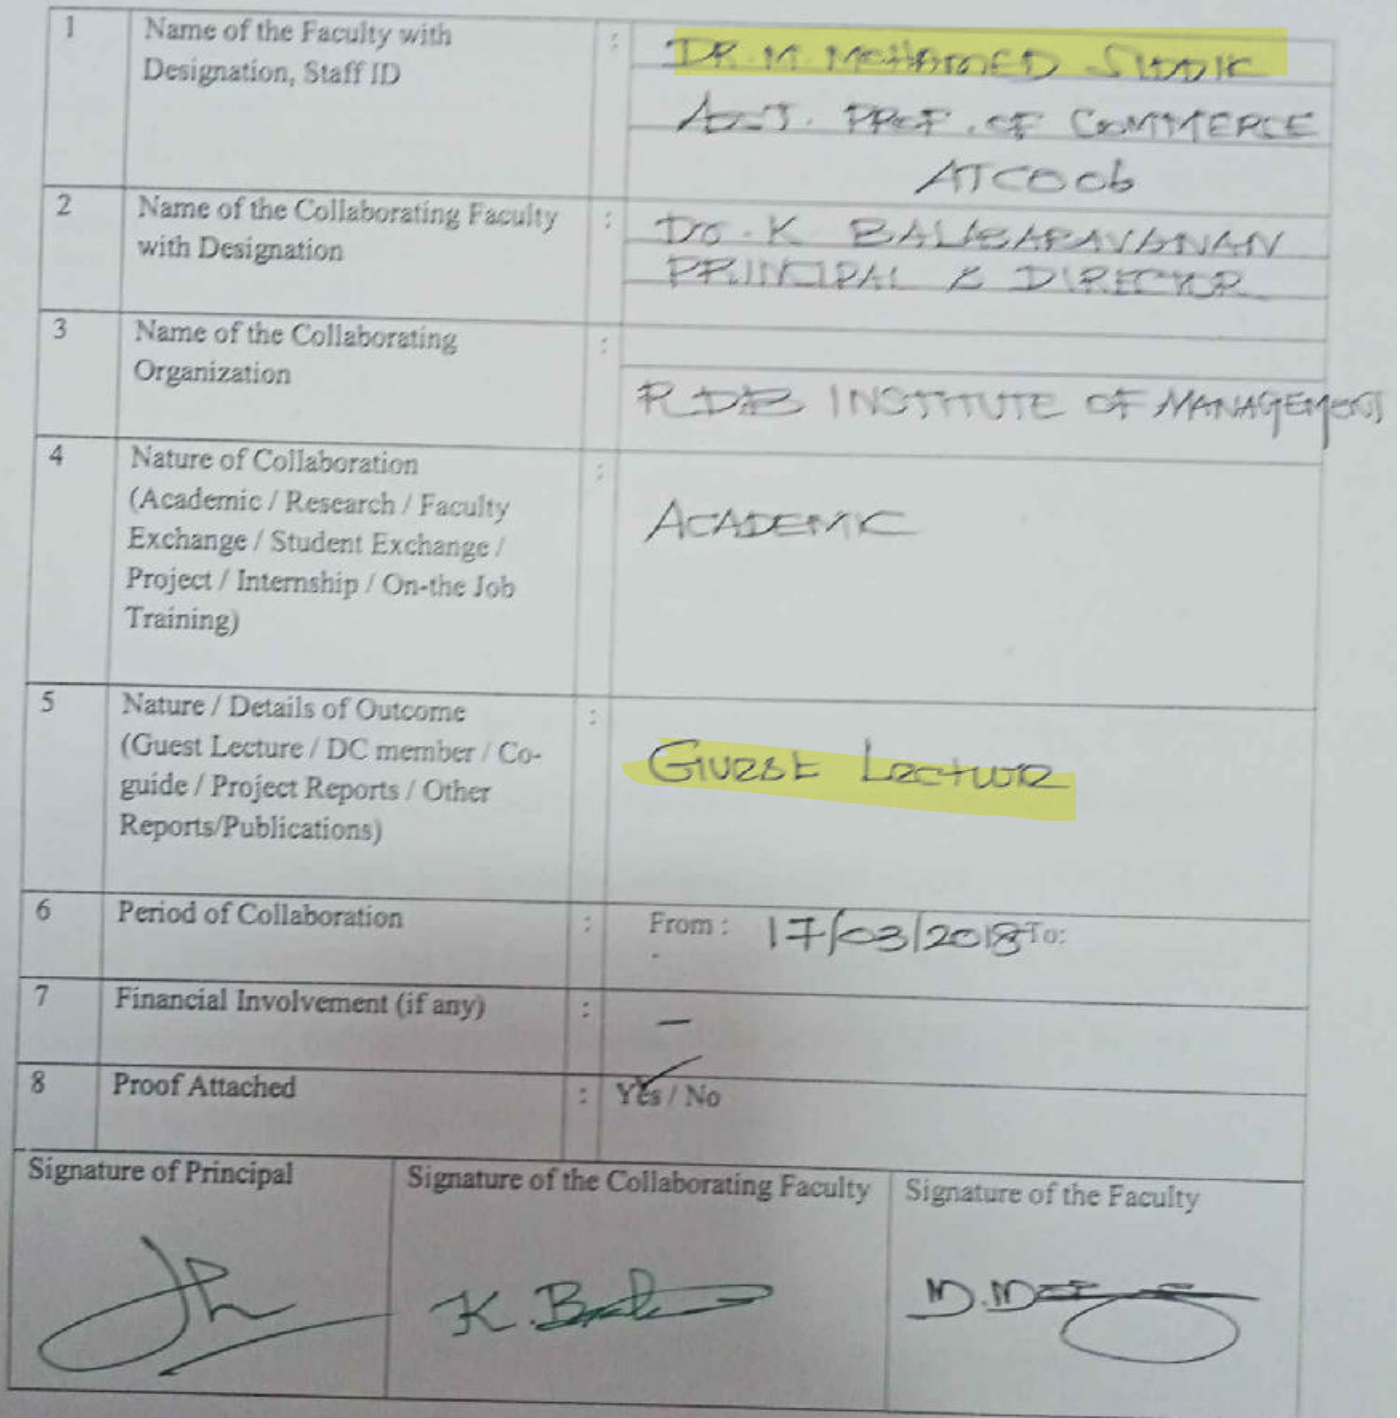 1 Name of the Faculty with : DR. M. MOHAMED SIDDIK
Designation, Staff ID
ASST. PROF. OF COMMERCE
ATC006
2 Name of the Collaborating Faculty : DR. K BALASARAVANAN
with Designation PRINCIPAL & DIRECTOR
3 Name of the Collaborating :
Organization
RDB INSTITUTE OF MANAGEMENT
4 Nature of Collaboration :
(Academic / Research / Faculty
Exchange / Student Exchange / ACADEMIC
Project / Internship / On-the Job
Training)
5 Nature / Details of Outcome :
(Guest Lecture / DC member / Co- Guest Lecture
guide / Project Reports / Other
Reports/Publications)
6 Period of Collaboration : From : 17/03/2018 To:
7 Financial Involvement (if any) : –
8 Proof Attached : Yes / No
Signature of Principal Signature of the Collaborating Faculty Signature of the Faculty
K. Bal